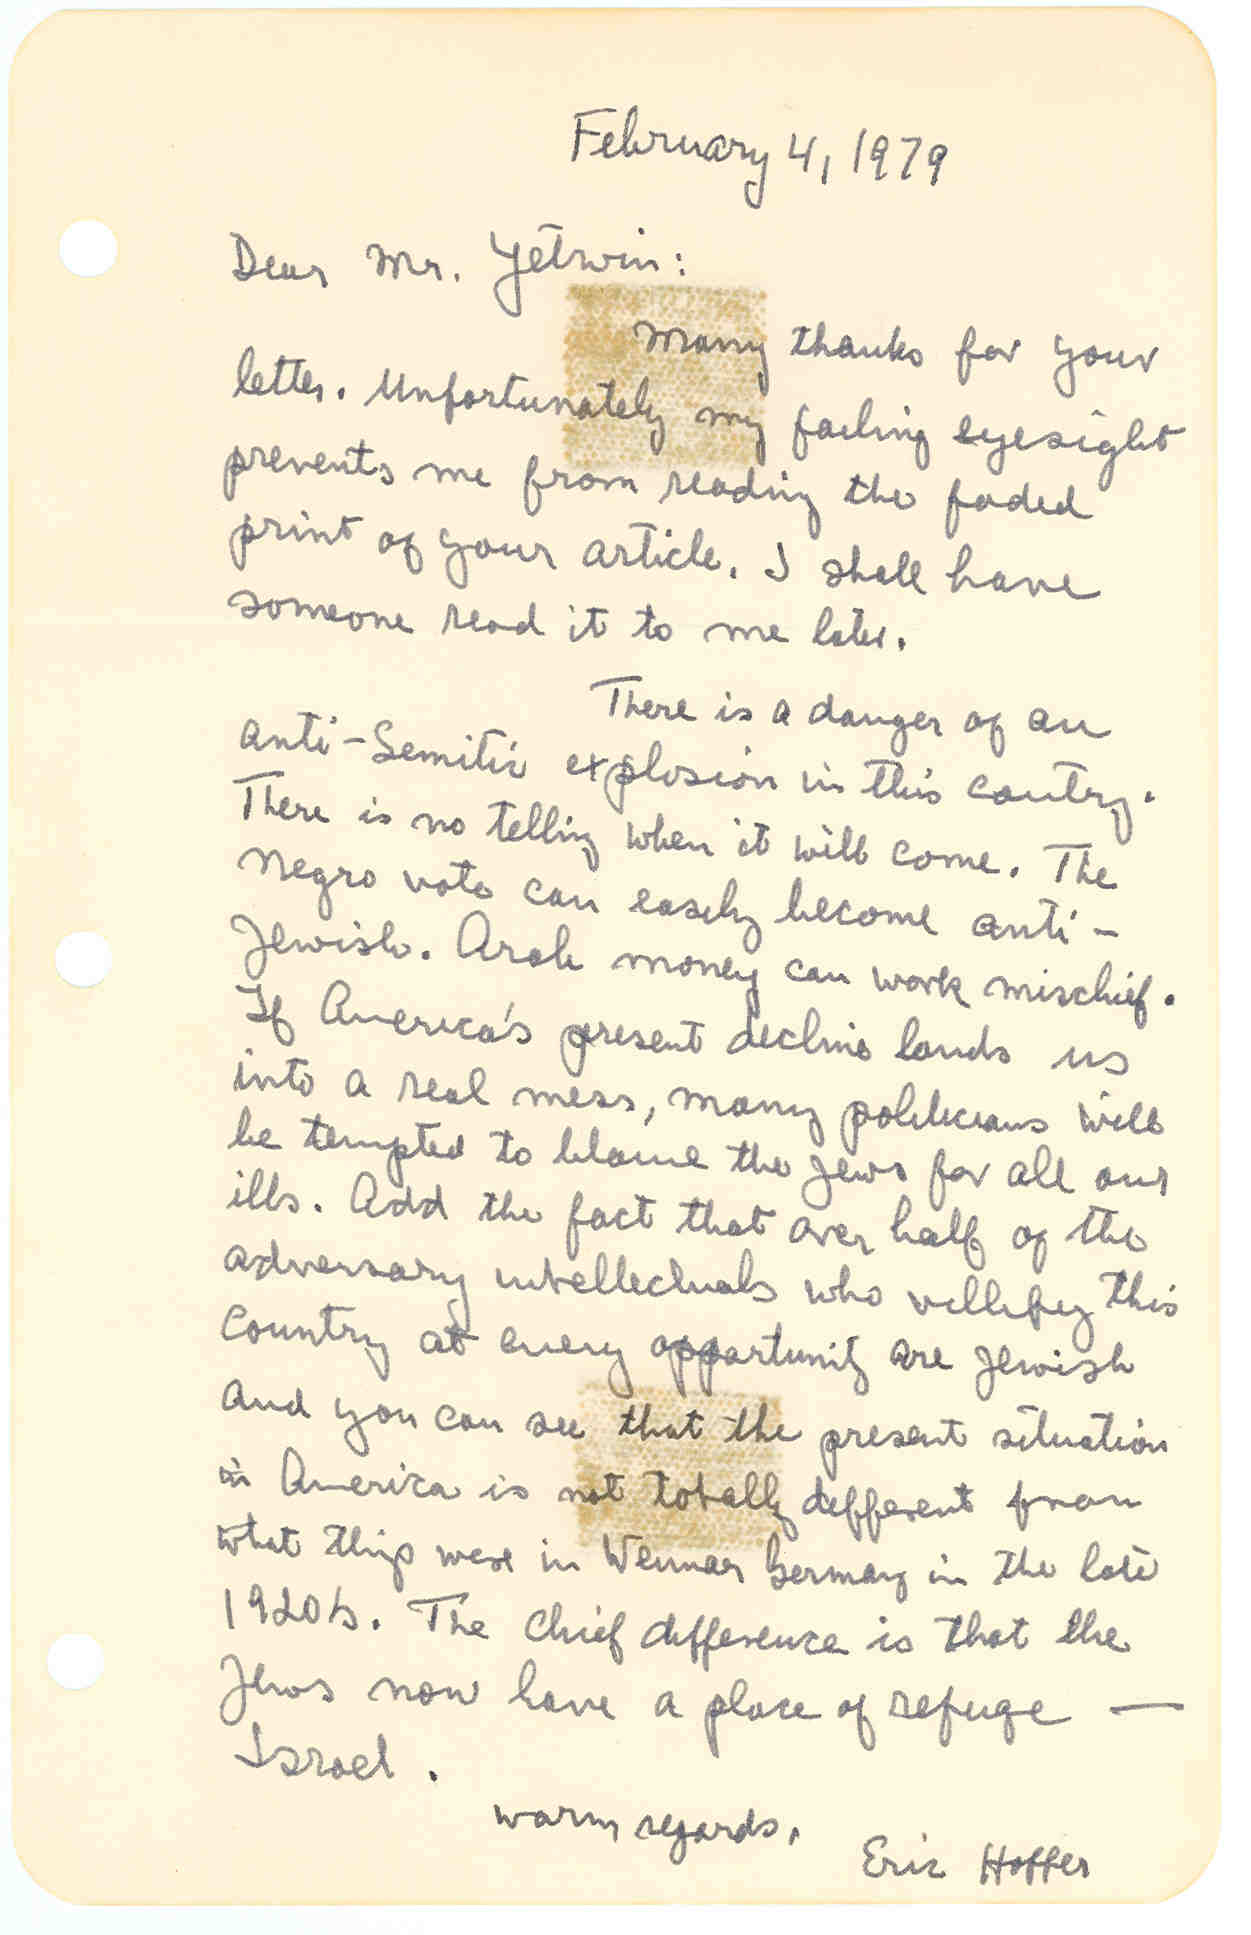 February 4, 1979
Dear Mr. Yetwin:
Many thanks for your
letter. Unfortunately my failing eyesight
prevents me from reading the faded
print of your article. I shall have
someone read it to me later.
There is a danger of an
anti-Semitic explosion in this coutry.
There is no telling when it will come. The
Negro vote can easily become anti-
Jewish. Arab money can work mischief.
If America's present decline lands us
into a real mess, many politicians will
be tempted to blame the Jews for all our
ills. Add the fact that over half of the
adversary intellectuals who villify this
country at every opportunity are Jewish
and you can see that the present situation
in America is not totally different from
what things were in Weimar Germany in the late
1920's. The chief difference is that the
Jews now have a place of refuge —
Israel.
Warm regards,
Eric Hoffer